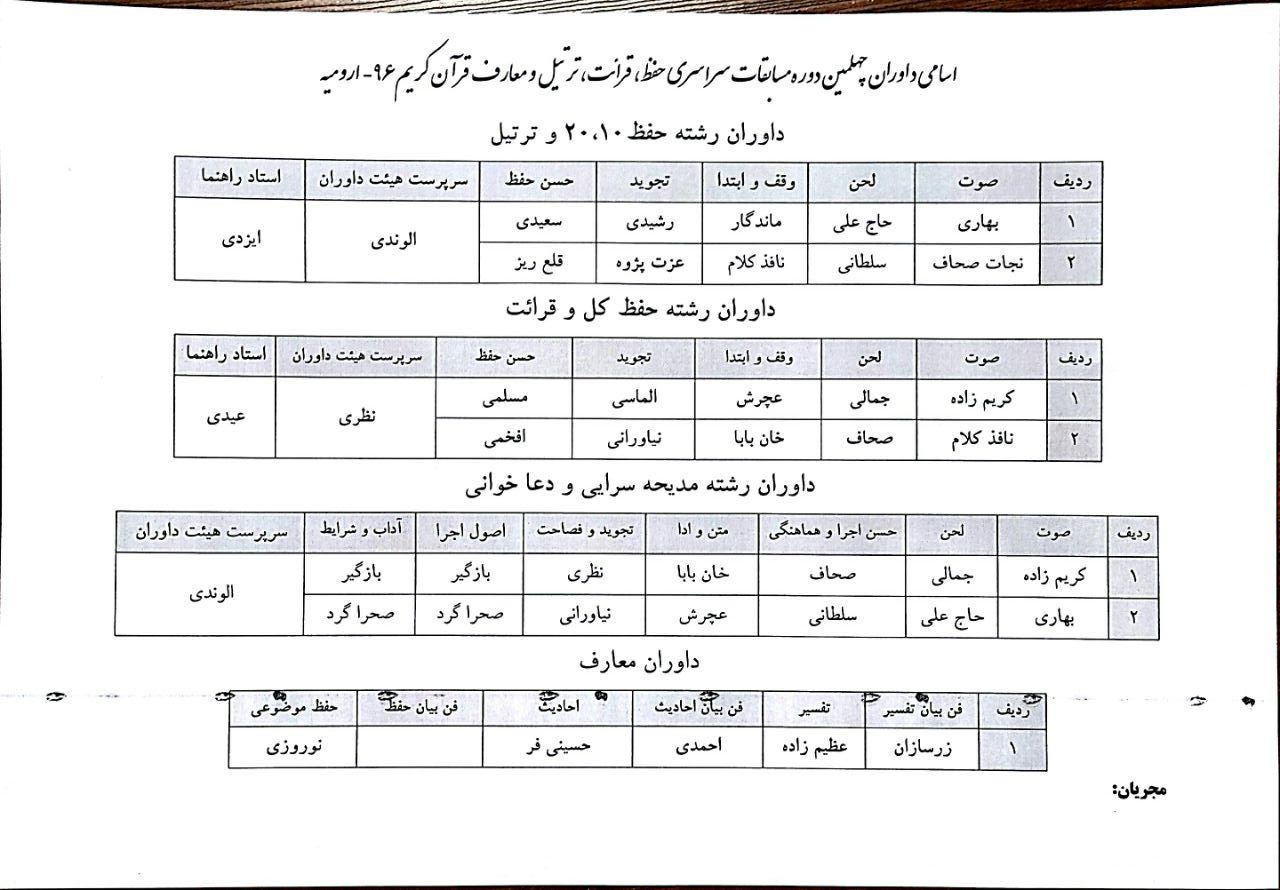 اسامی داوران چهلمین دوره مسابقات سراسری حفظ، قرائت، ترتیل و معارف قرآن کریم ۹۶- ارومیه
داوران رشته حفظ ۲۰،۱۰ و ترتیل
ردیف صوت لحن وقف و ابتدا تجوید حسن حفظ سرپرست هیئت داوران استاد راهنما
۱ بهاری حاج علی ماندگار رشیدی سعیدی الوندی ایزدی
۲ نجات صحاف سلطانی نافذ کلام عزت پژوه قلع ریز
داوران رشته حفظ کل و قرائت
ردیف صوت لحن وقف و ابتدا تجوید حسن حفظ سرپرست هیئت داوران استاد راهنما
۱ کریم زاده جمالی عچرش الماسی مسلمی نظری عیدی
۲ نافذ کلام صحاف خان بابا نیاورانی افخمی
داوران رشته مدیحه سرایی و دعا خوانی
ردیف صوت لحن حسن اجرا و هماهنگی متن و ادا تجوید و فصاحت اصول اجرا آداب و شرایط سرپرست هیئت داوران
۱ کریم زاده جمالی صحاف خان بابا نظری بازگیر بازگیر الوندی
۲ بهاری حاج علی سلطانی عچرش نیاورانی صحرا گرد صحرا گرد
داوران معارف
ردیف فن بیان تفسیر تفسیر فن بیان احادیث احادیث فن بیان حفظ حفظ موضوعی
۱ زرسازان عظیم زاده احمدی حسینی فر نوروزی
مجریان: